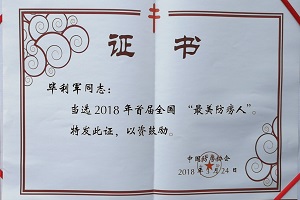 证书
毕利军同志：
当选2018年首届全国“最美防痨人”。
特发此证，以资鼓励。
中国防痨协会
2018年3月24日